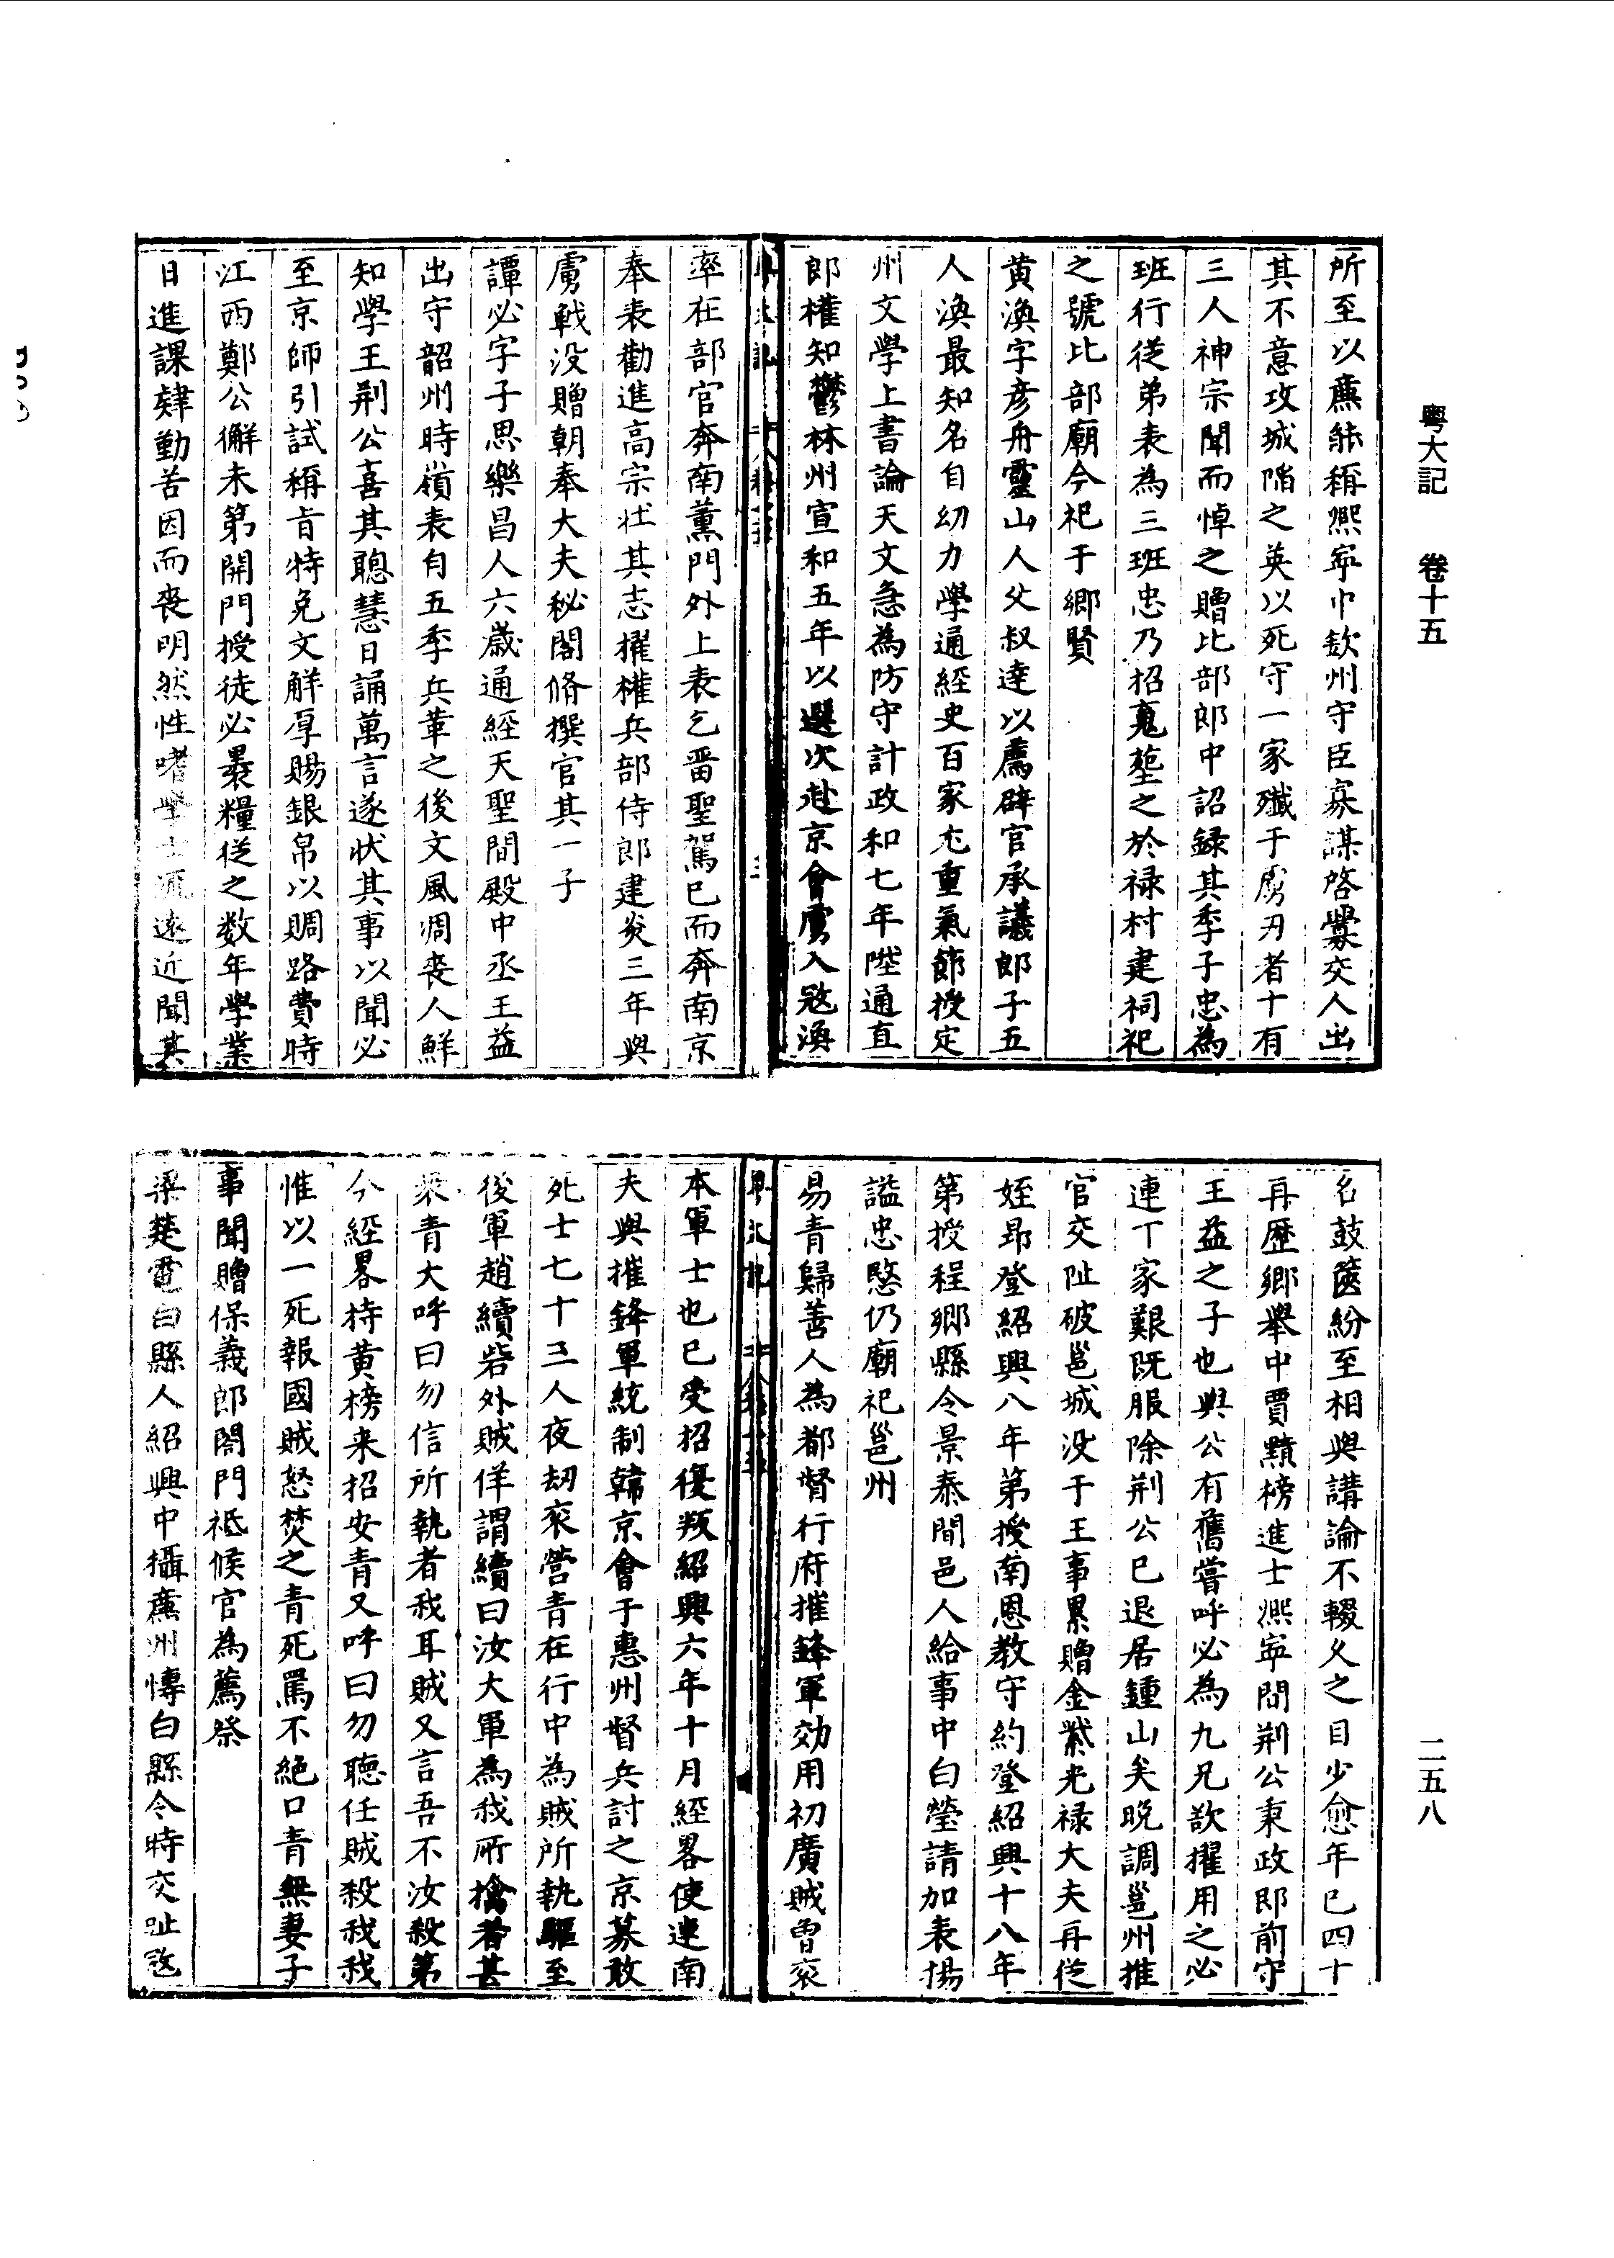 粵大記　卷十五
二五八
所至以亷能稱熙寕中欽州守臣寡謀啓釁交人出
其不意攻城陷之英以死守一家殲于虜刃者十有
三人神宗聞而悼之贈比部郎中詔録其季子忠為
班行從弟表為三班忠乃招䰟塟之於禄村建祠祀
之號比部廟今祀于鄉賢
黄渙字彦舟靈山人父叔達以薦辟官承議郎子五
人渙最知名自幼力學通經史百家尤重氣節授定
州文學上書論天文急為防守計政和七年陞通直
郎權知鬱林州宣和五年以選次赴京會虜入宼渙
率在部官奔南薰門外上表乞畱聖駕已而奔南京
奉表勸進高宗壮其志擢權兵部侍郎建炎三年與
虜戰没贈朝奉大夫秘閣脩撰官其一子
譚必字子思樂昌人六歲通經天聖間殿中丞王益
出守韶州時嶺表自五季兵革之後文風凋喪人鮮
知學王荆公喜其聰慧日誦萬言遂状其事以聞必
至京師引試稱㫖特免文解厚賜銀帛以賙路費時
江西鄭公獬未第開門授徒必褁糧從之数年學業
日進課肄勤苦因而喪明然性嗜學士流遠近聞其
名鼓篋紛至相與講論不輟父之目少愈年已四十
再歷鄉舉中賈黯榜進士熙寕間荆公秉政即前守
王益之子也與公有舊嘗呼必為九兄欲擢用之必
連丁家艱既服除荆公已退居鍾山矣晩調邕州推
官交阯破邕城没于王事累贈金紫光禄大夫再從
姪昂登紹興八年第授南恩教守約登紹興十八年
第授程鄉縣令景泰間邑人給事中白瑩請加表揚
謚忠愍仍廟祀邕州
易青歸善人為都督行府摧鋒軍効用初廣賊曾衮
本軍士也已受招復叛紹興六年十月經畧使連南
夫與摧鋒軍統制韓京會于惠州督兵討之京募敢
死士七十三人夜刼衮營青在行中為賊所執驅至
後軍趙續砦外賊佯謂續曰汝大軍為我所擒者甚
衆青大呼曰勿信所執者我耳賊又言吾不汝殺第
令經畧持黄榜来招安青又呼曰勿聽任賊殺我我
惟以一死報國賊怒焚之青死罵不絶口青無妻子
事聞贈保義郎閤門祗候官為薦祭
梁楚電白縣人紹興中攝亷州慱白縣令時交阯宼